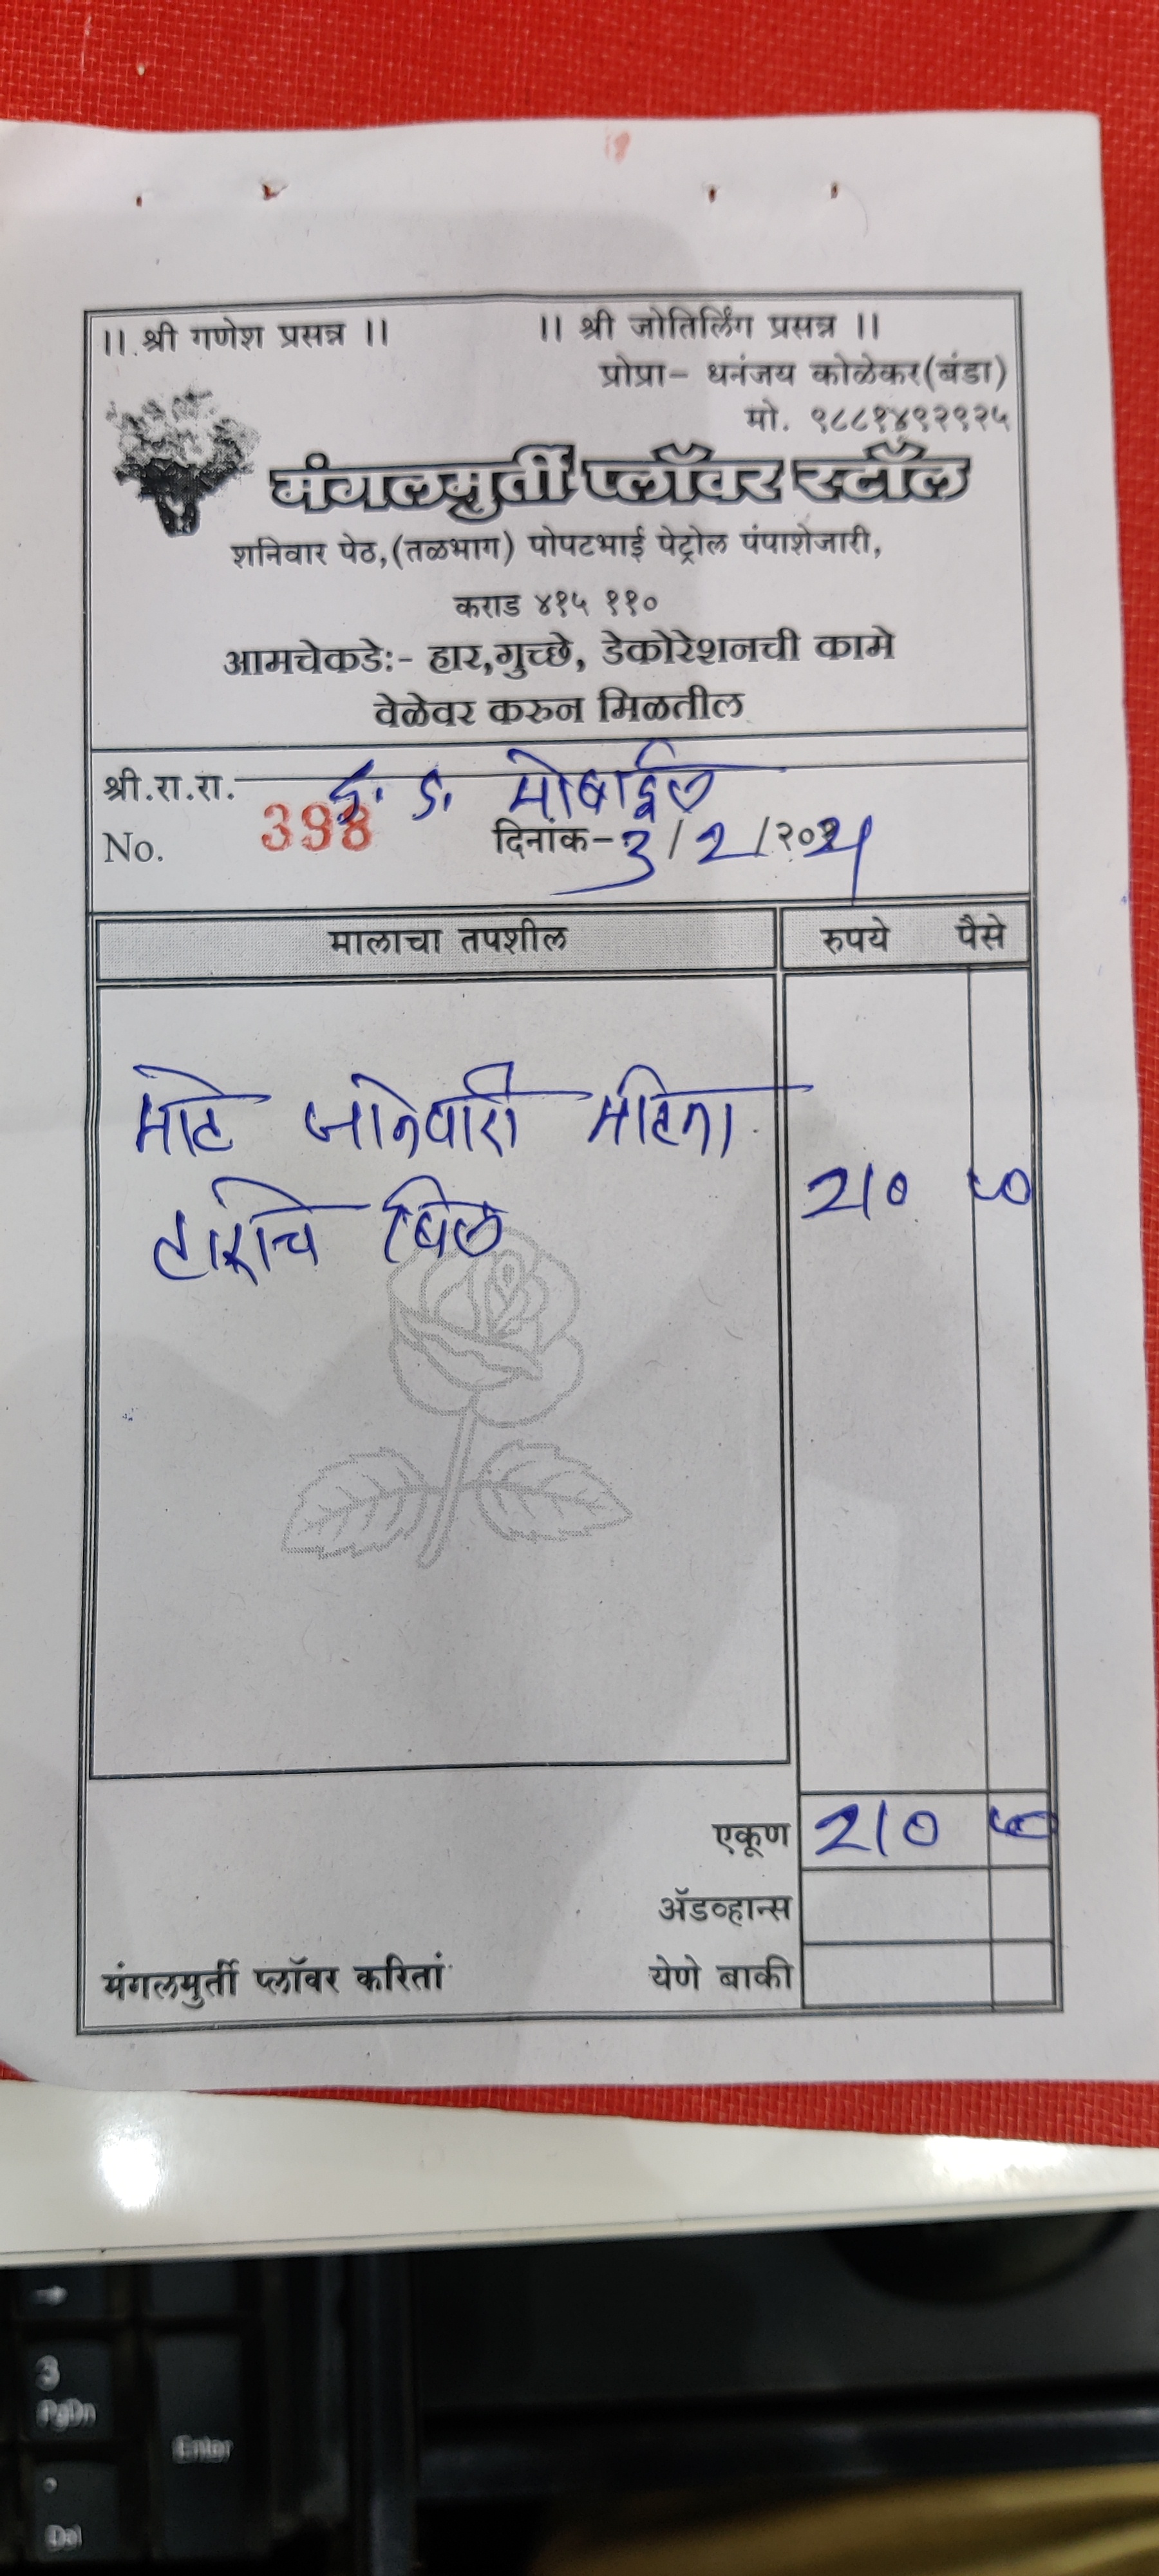 ।। श्री गणेश प्रसन्न ।। ।। श्री जोतिर्लिंग प्रसन्न ।।
प्रोप्रा- धनंजय कोळेकर(बंडा)
मो. ९८८१४९२९२५
मंगलमुर्ती प्लॉवर स्टॉल
शनिवार पेठ,(तळभाग) पोपटभाई पेट्रोल पंपाशेजारी,
कराड ४१५ ११०
आमचेकडे:- हार,गुच्छे, डेकोरेशनची कामे
वेळेवर करुन मिळतील
श्री.रा.रा. एस. एस. मोबाईल
No. 398 दिनांक- 3/2/२०
मालाचा तपशील रुपये पैसे
माहे जानेवारी महिना
हाराचे बिल 210
एकूण 210
ॲडव्हान्स
मंगलमुर्ती प्लॉवर करितां येणे बाकी
3
PgDn
Enter
.
Del